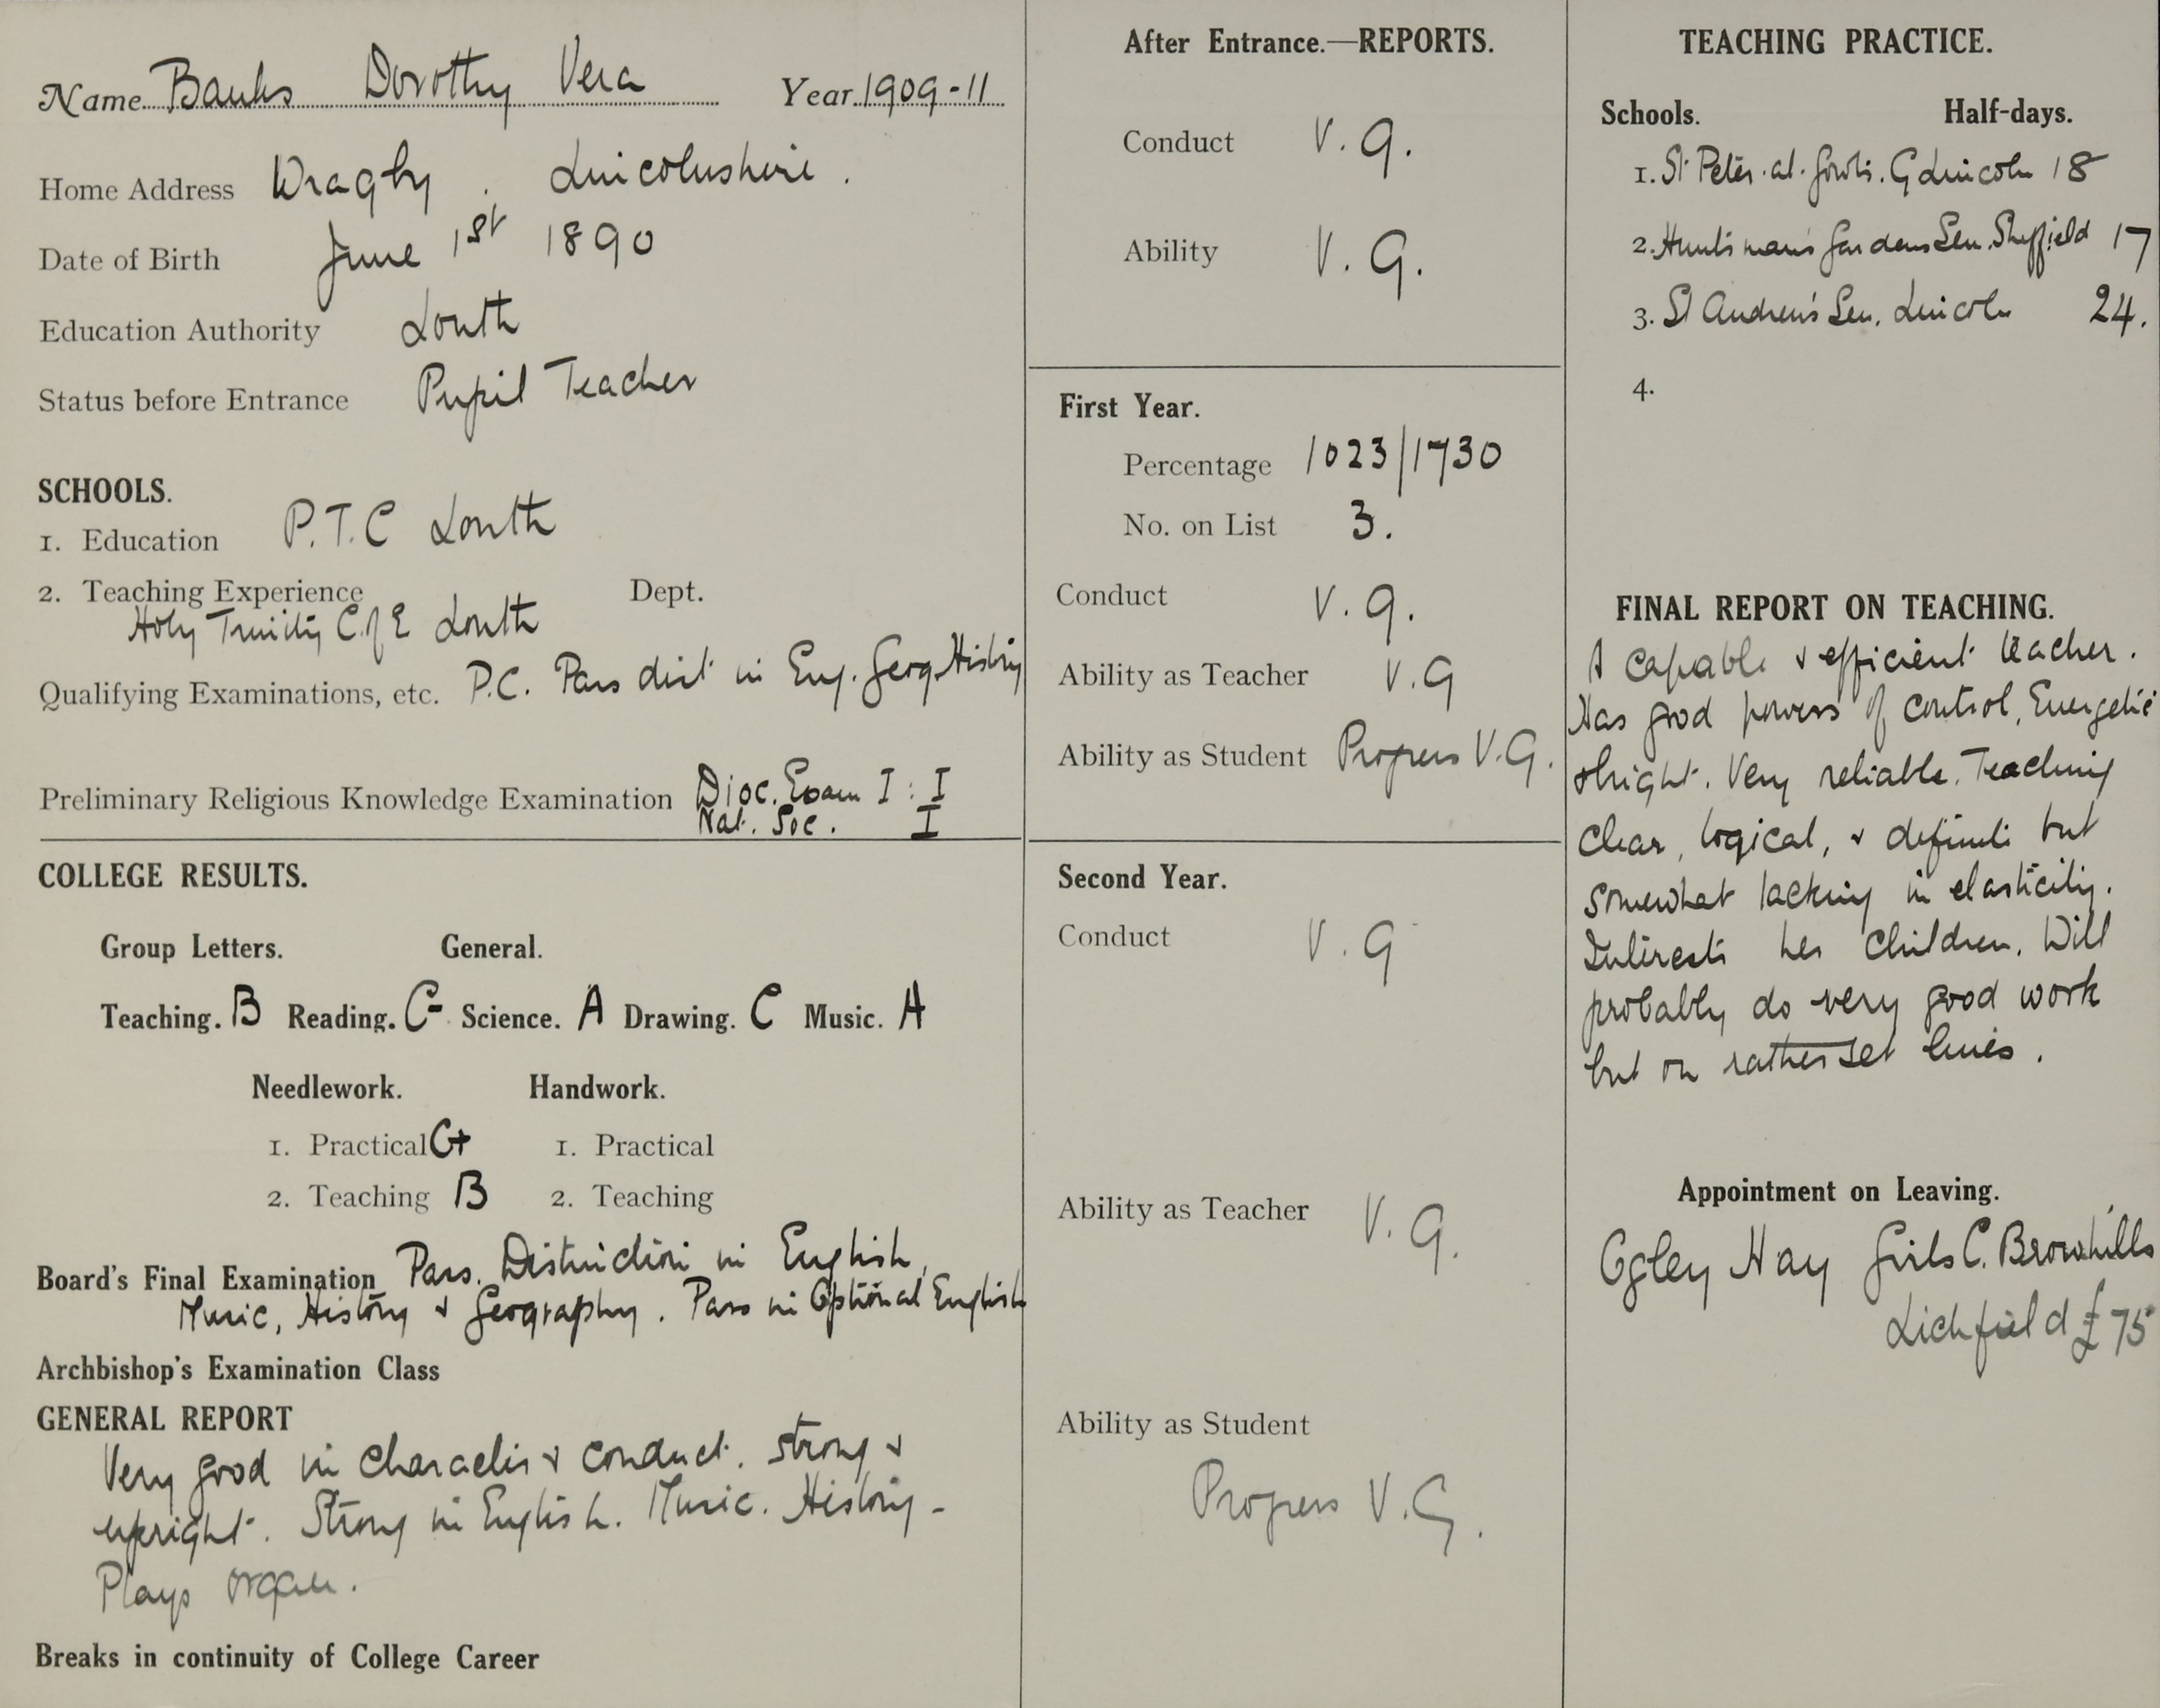 Name Banks Dorothy Vera Year 1909-11
Home Address Wragby . Lincolnshire .
Date of Birth June 1st 1890
Education Authority Louth
Status before Entrance Pupil Teacher
SCHOOLS.
1. Education P.T.C Louth
2. Teaching Experience Dept.
Holy Trinity C. of E Louth
Qualifying Examinations, etc. P.C. Pass dist in Eng. Geog. History
Preliminary Religious Knowledge Examination Dioc. Exam I : I
Nat. Soc. I
COLLEGE RESULTS.
Group Letters. General.
Teaching. B Reading. C- Science. A Drawing. C Music. A
Needlework. Handwork.
1. Practical C+ 1. Practical
2. Teaching B 2. Teaching
Board's Final Examination Pass. Distinction in English,
Music, History & Geography. Pass in Optional English
Archbishop's Examination Class
GENERAL REPORT
Very good in character & conduct. Strong &
upright. Strong in English. Music. History -
Plays organ.
Breaks in continuity of College Career
After Entrance.—REPORTS.
Conduct V. G.
Ability V. G.
First Year.
Percentage 1023/1730
No. on List 3.
Conduct V. G.
Ability as Teacher V. G
Ability as Student Progress V. G.
Second Year.
Conduct V. G
Ability as Teacher V. G.
Ability as Student
Progress V. G.
TEACHING PRACTICE.
Schools. Half-days.
1. St Peter-at-Gowts. G Lincoln 18
2. Huntsman's Gardens Sen. Sheffield 17
3. St Andrew's Sen. Lincoln 24.
4.
FINAL REPORT ON TEACHING.
A capable & efficient teacher.
Has good powers of control. Energetic
& bright. Very reliable. Teaching
clear, logical, & definite but
somewhat lacking in elasticity.
Interests her children. Will
probably do very good work
but on rather set lines.
Appointment on Leaving.
Ogley Hay Girls C. Brownhills
Lichfield £75